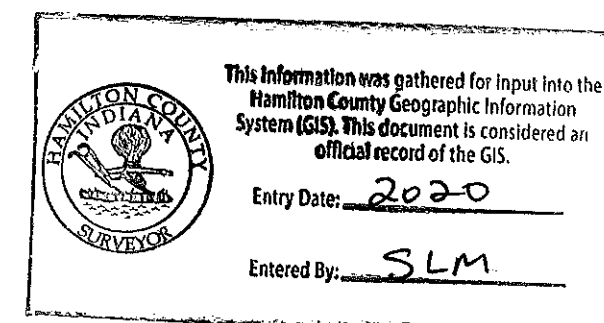 HAMILTON COUNTY
INDIANA
SURVEYOR
This information was gathered for input into the
Hamilton County Geographic Information
System (GIS). This document is considered an
official record of the GIS.
Entry Date: 2020
Entered By: SLM